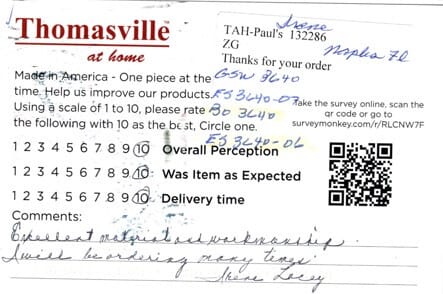 Thomasville
at home
Irene
TAH-Paul's 132286
ZG
Naples Fl
Thanks for your order
Made in America - One piece at the GSW 3640
time. Help us improve our products. FS3640-07
Using a scale of 1 to 10, please rate BO 3640
the following with 10 as the best, Circle one.
ES3640-06
Take the survey online, scan the
qr code or go to
surveymonkey.com/r/RLCNW7F
1 2 3 4 5 6 7 8 9 10 Overall Perception
1 2 3 4 5 6 7 8 9 10 Was Item as Expected
1 2 3 4 5 6 7 8 9 10 Delivery time
Comments:
Excellent material and workmanship
I will be ordering many times.
Irene Lacey